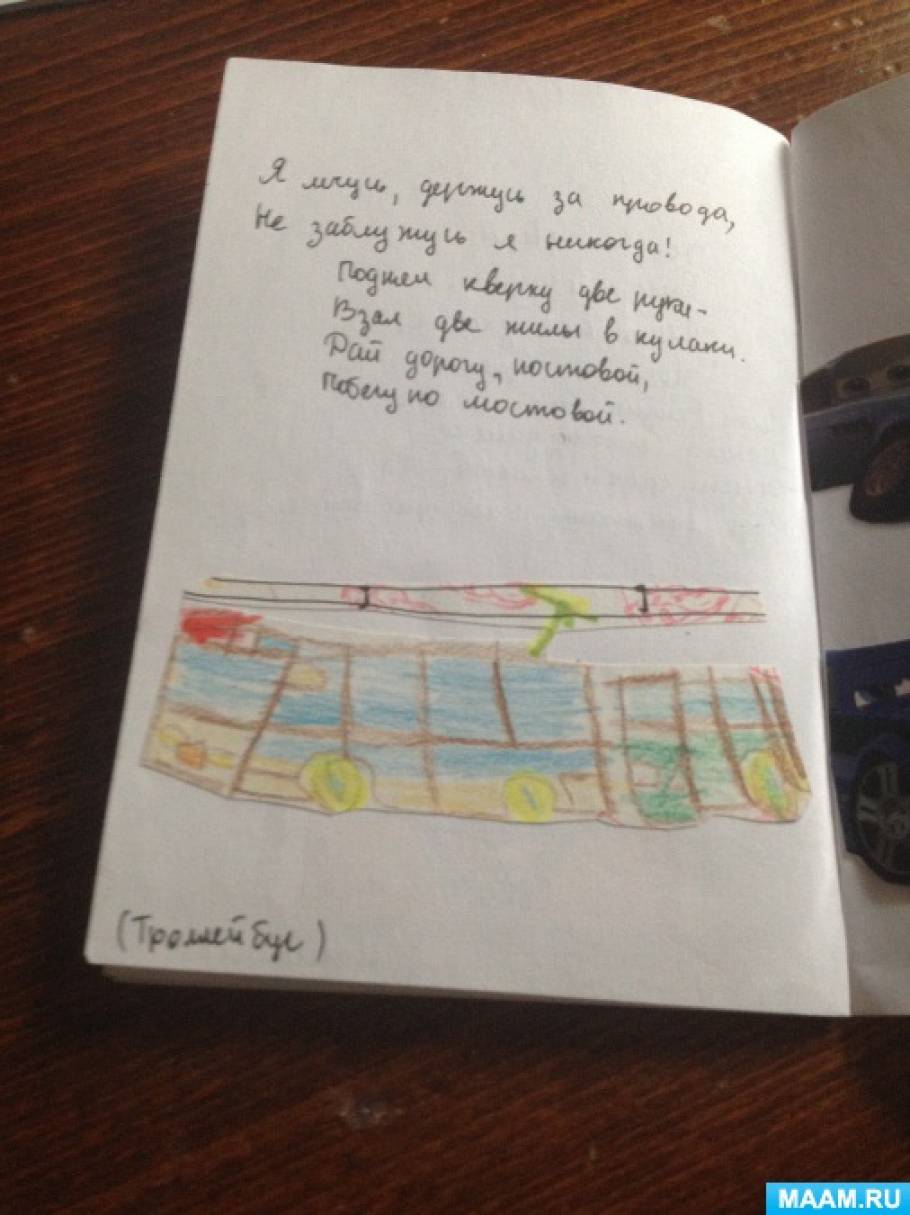 Я мчусь, держусь за провода,
Не заблужусь я никогда!
Поднял кверху две руки-
Взял две жилы в кулаки.
Дай дорогу, постовой,
Побегу по мостовой.
(Троллейбус)
MAAM.RU